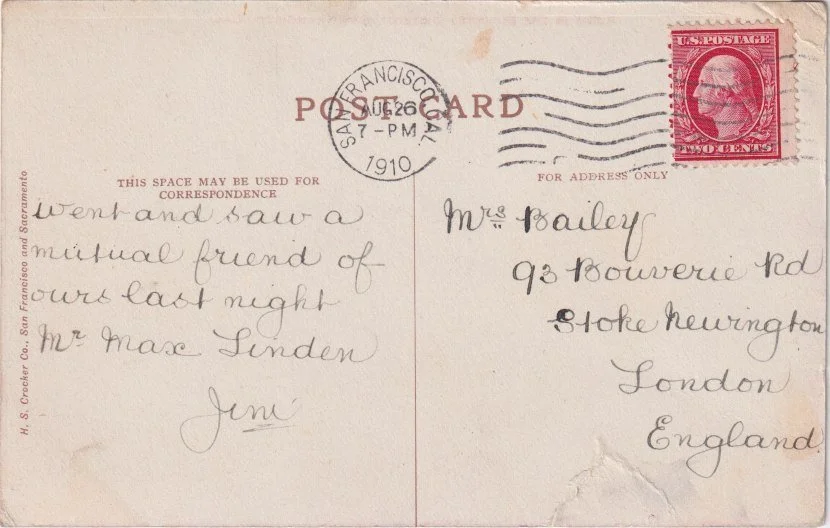 U.S. POSTAGE
SAN FRANCISCO, CAL.
AUG 26
7 - PM
1910
POST CARD
THIS SPACE MAY BE USED FOR
CORRESPONDENCE
FOR ADDRESS ONLY
went and saw a
mutual friend of
ours last night
Mr Max Linden
Jim
Mrs Bailey
93 Bouverie Rd
Stoke Newington
London
England
H. S. Crocker Co., San Francisco and Sacramento